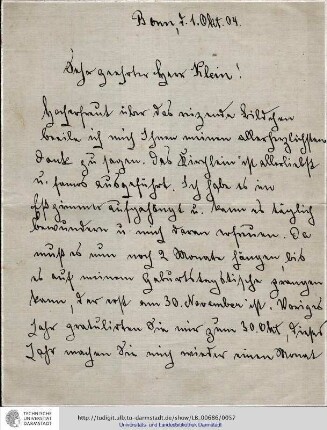 Bonn, d. 1. Okt. 04.
Sehr geehrter Herr Klein!
Hocherfreut über das reizende Bildchen
beeile ich mich Ihnen meinen allerherzlichsten
Dank zu sagen. Das Kirchlein ist allerliebst
u. famos ausgeführt. Ich habe es im
Eßzimmer aufgehängt u. kann es täglich
bewundern u. mich daran erfreuen. Da
muß es nun noch 2 Monate hängen, bis
es auf meinem Geburtstagstische prangen
kann, der erst am 30. November ist. Voriges
Jahr gratulierten Sie mir zum 30. Okt., dieses
Jahr machen Sie mich wieder einen Monat
TECHNISCHE
UNIVERSITÄT
DARMSTADT
http://tudigit.ulb.tu-darmstadt.de/show/LK_00686/0057
Universitäts- und Landesbibliothek Darmstadt